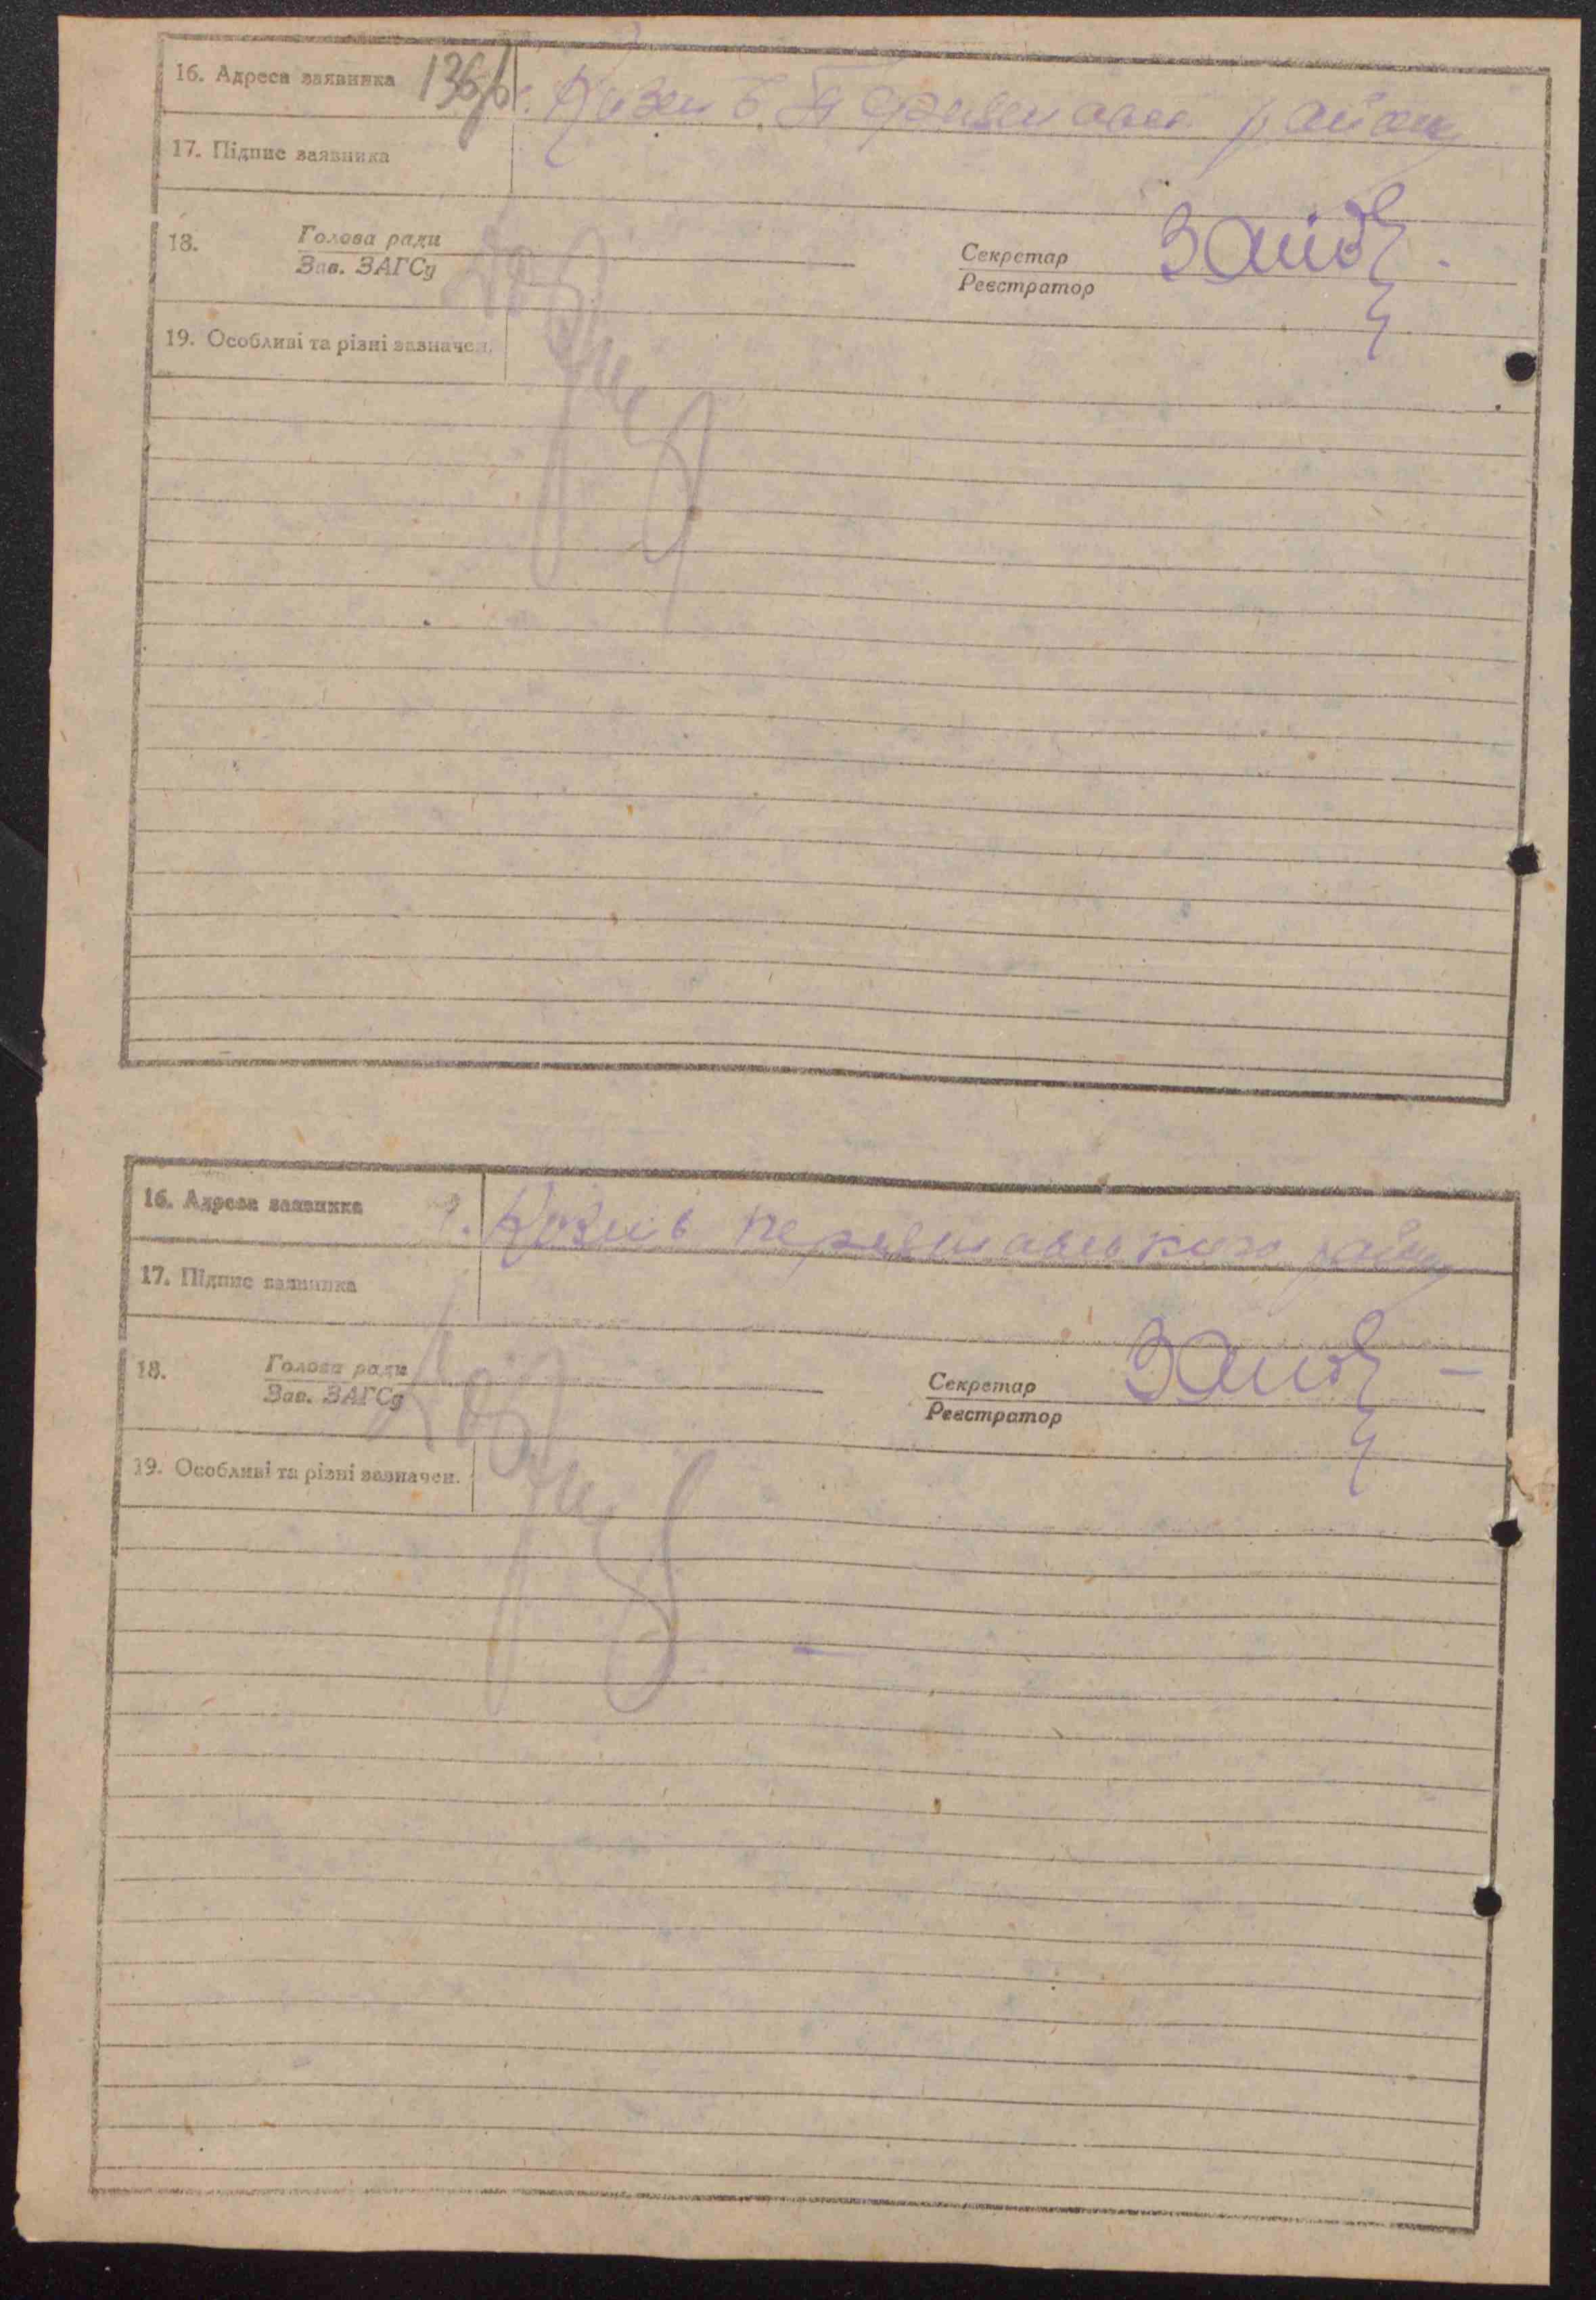 16. Адреса заявника 136 с. Козин Переяславс району
17. Підпис заявника
18. Голова ради
Зав. ЗАГСу
Секретар
Реєстратор
19. Особливі та різні зазначен.
16. Адреса заявника с. Козин Переяславського району
17. Підпис заявника
18. Голова ради
Зав. ЗАГСу
Секретар
Реєстратор
19. Особливі та різні зазначен.